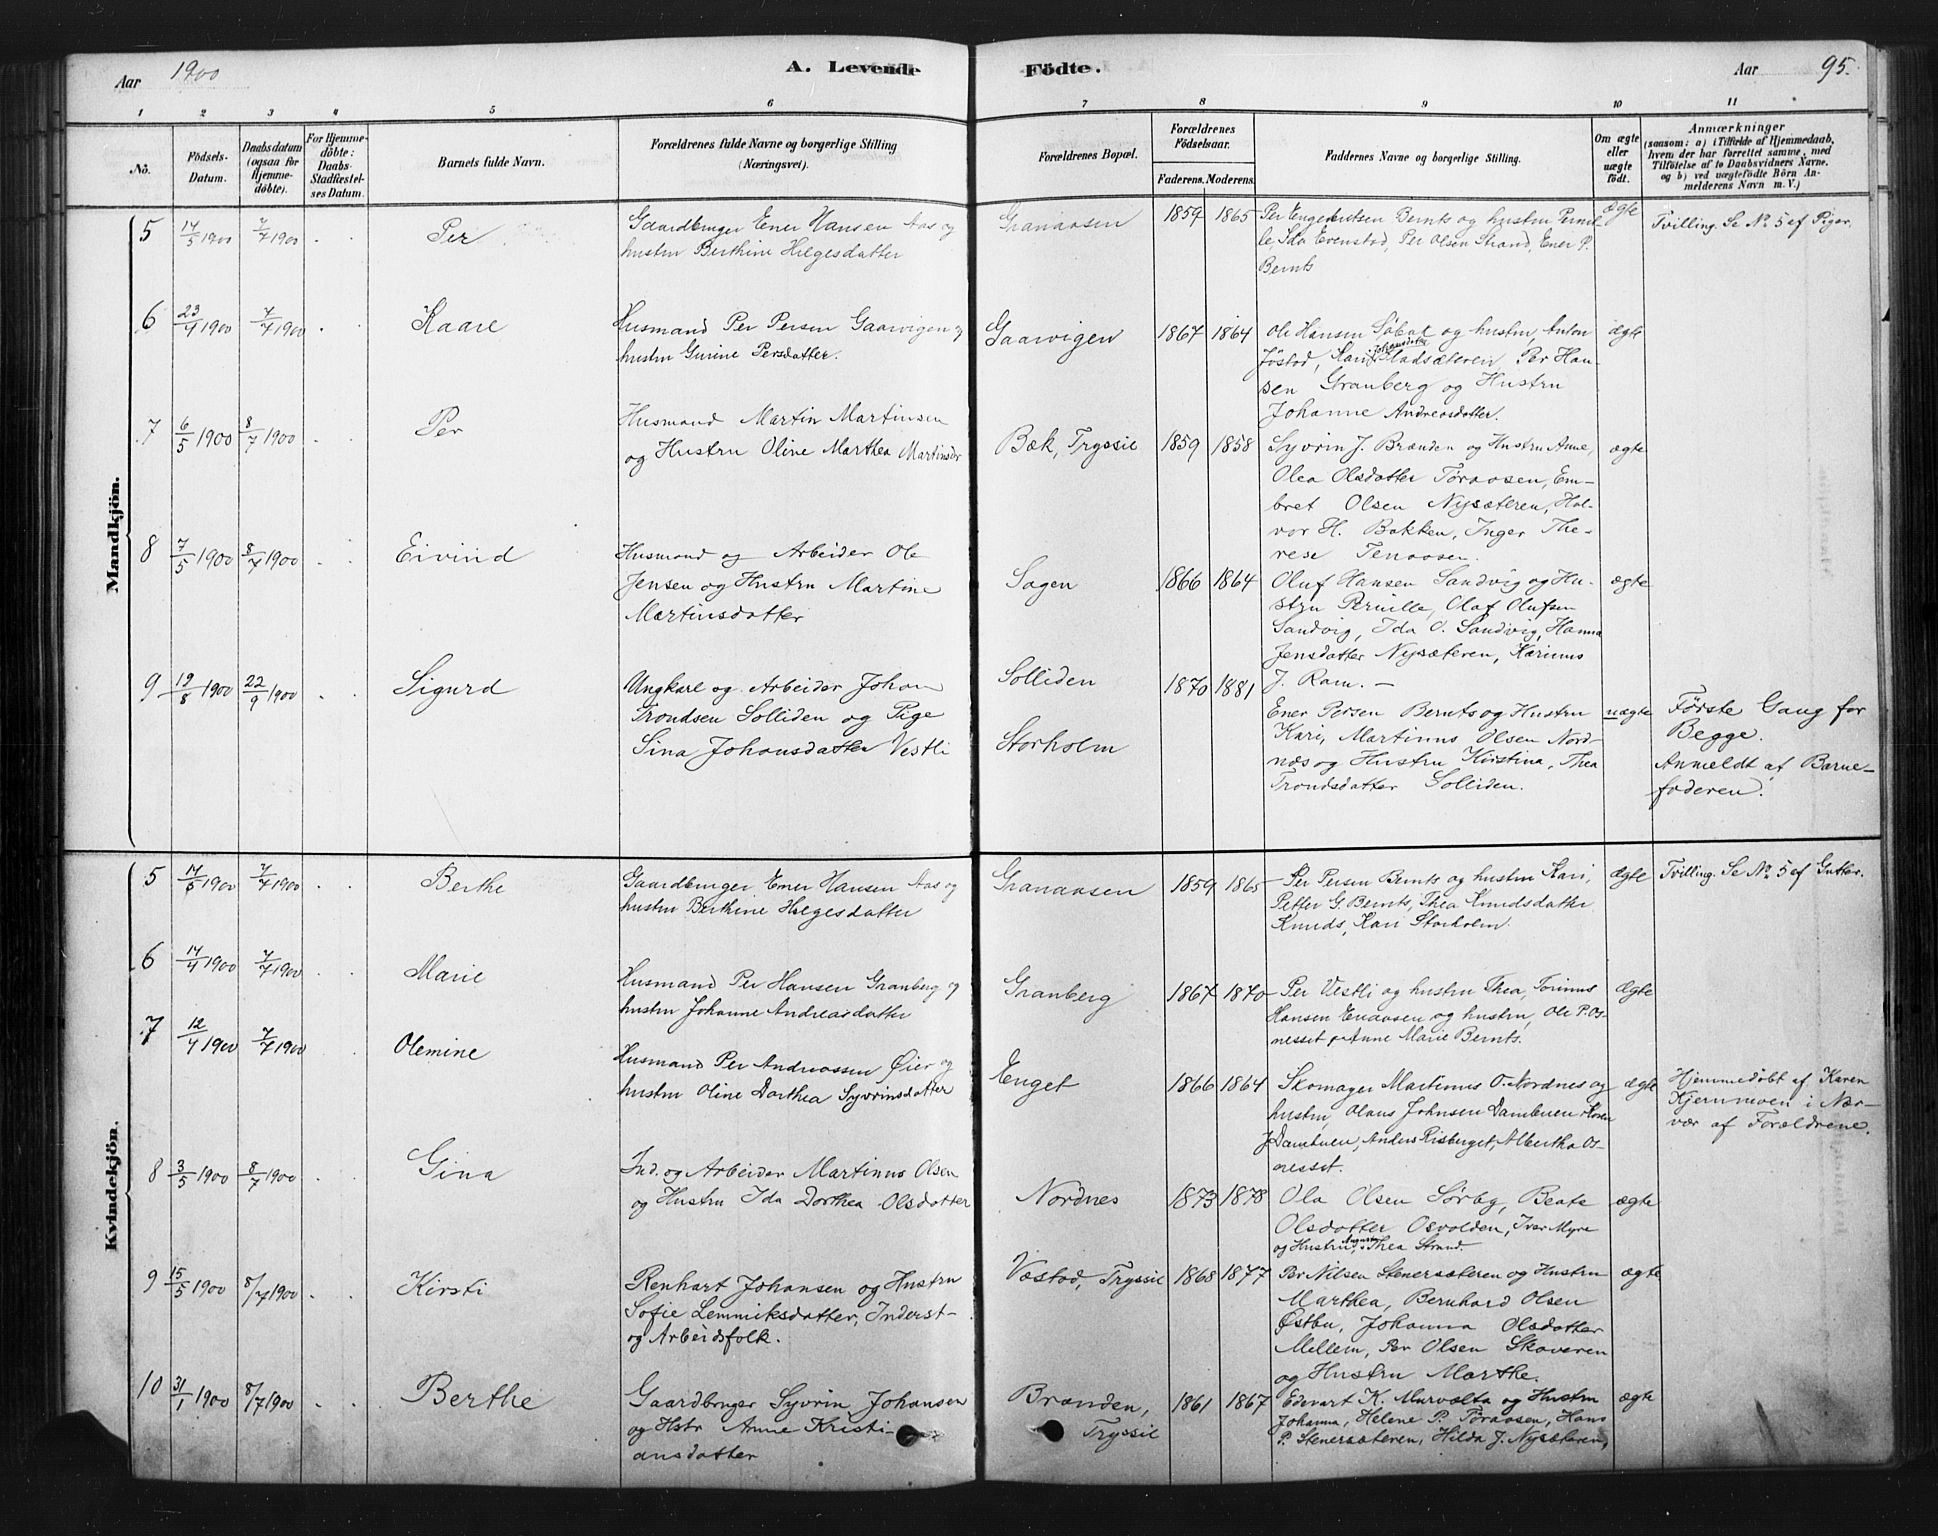 Aar 1900
A. Levende Födte.
Aar 95.
1 2 3 4 5 6 7 8 9 10 11
No.
Födsels-Datum.
Daabsdatum (ogsaa for Hjemme-döbte).
For Hjemme-döbte: Daabs Stadfæstel-ses Datum.
Barnets fulde Navn.
Forældrenes fulde Navne og borgerlige Stilling (Næringsvei).
Forældrenes Bopæl.
Forældrenes Födselsaar.
Faderens. Moderens.
Faddernes Navne og borgerlige Stilling.
Om ægte eller uægte födt.
Anmærkninger
(saasom: a) i Tilfælde af Hjemmedaab,
hvem der har forrettet samme, med
Tilföielse af to Daabsvidners Navne,
og b) ved uægtefödte Börn An-
melderens Navn m. V.)
Mandkjön.
5 14/5 1900 7/7 1900 Per
Gaardbruger Ener Hansen Aas og
hustru Berthine Helgesdatter
Granaasen 1859 1865
Per Engebretsen Bernts og hustru Pernil-
le, Ida Evenstad, Per Olsen Strand, Ener P.
Bernts
ægte
Tvilling. Se No 5 af Piger.
6 23/4 1900 7/7 1900 Kaare
Husmand Per Persen Gaarvigen og
hustru Gurine Persdatter.
Gaarvigen 1867 1864
Ole Hansen og hustru, Anton
Jøstad, Kari Johansdatter Madsæteren, Per Han-
sen Granberg og Hustru
Johanne Andreasdatter.
ægte
7 6/5 1900 8/7 1900 Per
Husmand Martin Martinsen
og Hustru Oline Marthea Martinsdr
Bæk, Tryssil 1859 1858
Syvrin J. Brænden og Hustru Anne,
Olea Olsdatter Tøraasen, Em-
bret Olsen Nysæteren, Hal-
vor H. Bakken, Inger The-
rese Tenaasen.
ægte
8 7/5 1900 8/7 1900 Eivind
Husmand og Arbeider Ole
Jensen og Hustru Martine
Martinsdatter
Sagen 1866 1864
Oluf Hansen Sandvig og Hu-
stru Pernille, Olaf Olufsen
Sandvig, Ida O. Sandvig, Hanna
Jensdatter Nysæteren, Karinus
J. Ram. —
ægte
9 19/8 1900 22/9 1900 Sigurd
Ungkarl og Arbeider Johan
Trondsen Solliden og Pige
Sina Johansdatter Vestli
Solliden
Storholm
1870 1881
Ener Persen Bernts og Hustru
Kari, Martinus Olsen Nord-
næs og Hustru Kirstina, Thea
Trondsdatter Solliden.
uægte
Første Gang for
Begge.
Anmeldt af Barne-
faderen.
Kvindekjön.
5 14/5 1900 7/7 1900 Berthe
Gaardbruger Ener Hansen Aas og
hustru Berthine Helgesdatter
Granaasen 1859 1865
Per Persen Bernts og hustru Kari,
Petter G. Bernts, Thea Knudsdatter
Knuds, Kari Storholm.
Ægte
Tvilling. Se No 5 af Gutter.
6 14/4 1900 7/7 1900 Marie
Husmand Per Hansen Granberg og
hustru Johanne Andreasdatter
Granberg 1867 1870
Per Vestli og hustru Thea, Torinus
Hansen Enaasen og hustru, Ole P. Os-
nesset, Anne Marie Bernts.
Ægte
7 12/4 1900 7/7 1900 Olemine
Husmand Per Andreassen Øier og
hustru Oline Dorthea Syvrinsdatter
Enget 1866 1864
Skomager Martinus O. Nordnes og
hustru, Olaus Johnsen Dambuen,
J Dambuen, Anders Risberget, Albertha Os-
nesset.
ægte
Hjemmedøbt af Karen
Kjernmoen i Nær-
vær af Forældrene.
8 3/5 1900 8/7 1900 Gina
Ind. og Arbeider Martinus Olsen
og Hustru Ida Dorthea Olsdatter
Nordnes 1873 1878
Ola Olsen Sørbg, Beate
Olsdatter Osvolden, Iver Myre
og Hustru Augusta, Thea Strand.
ægte
9 15/5 1900 8/7 1900 Kirsti
Renhart Johansen og Hustru
Sofie Lemmiksdatter, Inderst-
og Arbeidsfolk.
Væstad, Tryssil 1868 1877
Per Nilsen Stenersæteren og Hustru
Marthea, Bernhard Olsen
Østbu, Johanna Olsdatter
Mellem, Per Olsen Skoveren
og Hustru Marthe.
ægte
10 31/1 1900 8/7 1900 Berthe
Gaardbruger Syvrin Johansen
og Hstr Anne Kristi-
ansdatter
Brænden,
Tryssil
1861 1867
Edevart K. Murvælta og Hustru
Johanna, Helene P. Tøraasen, Hans
P. Stenersæteren, Hilda J. Nysæteren,
ægte